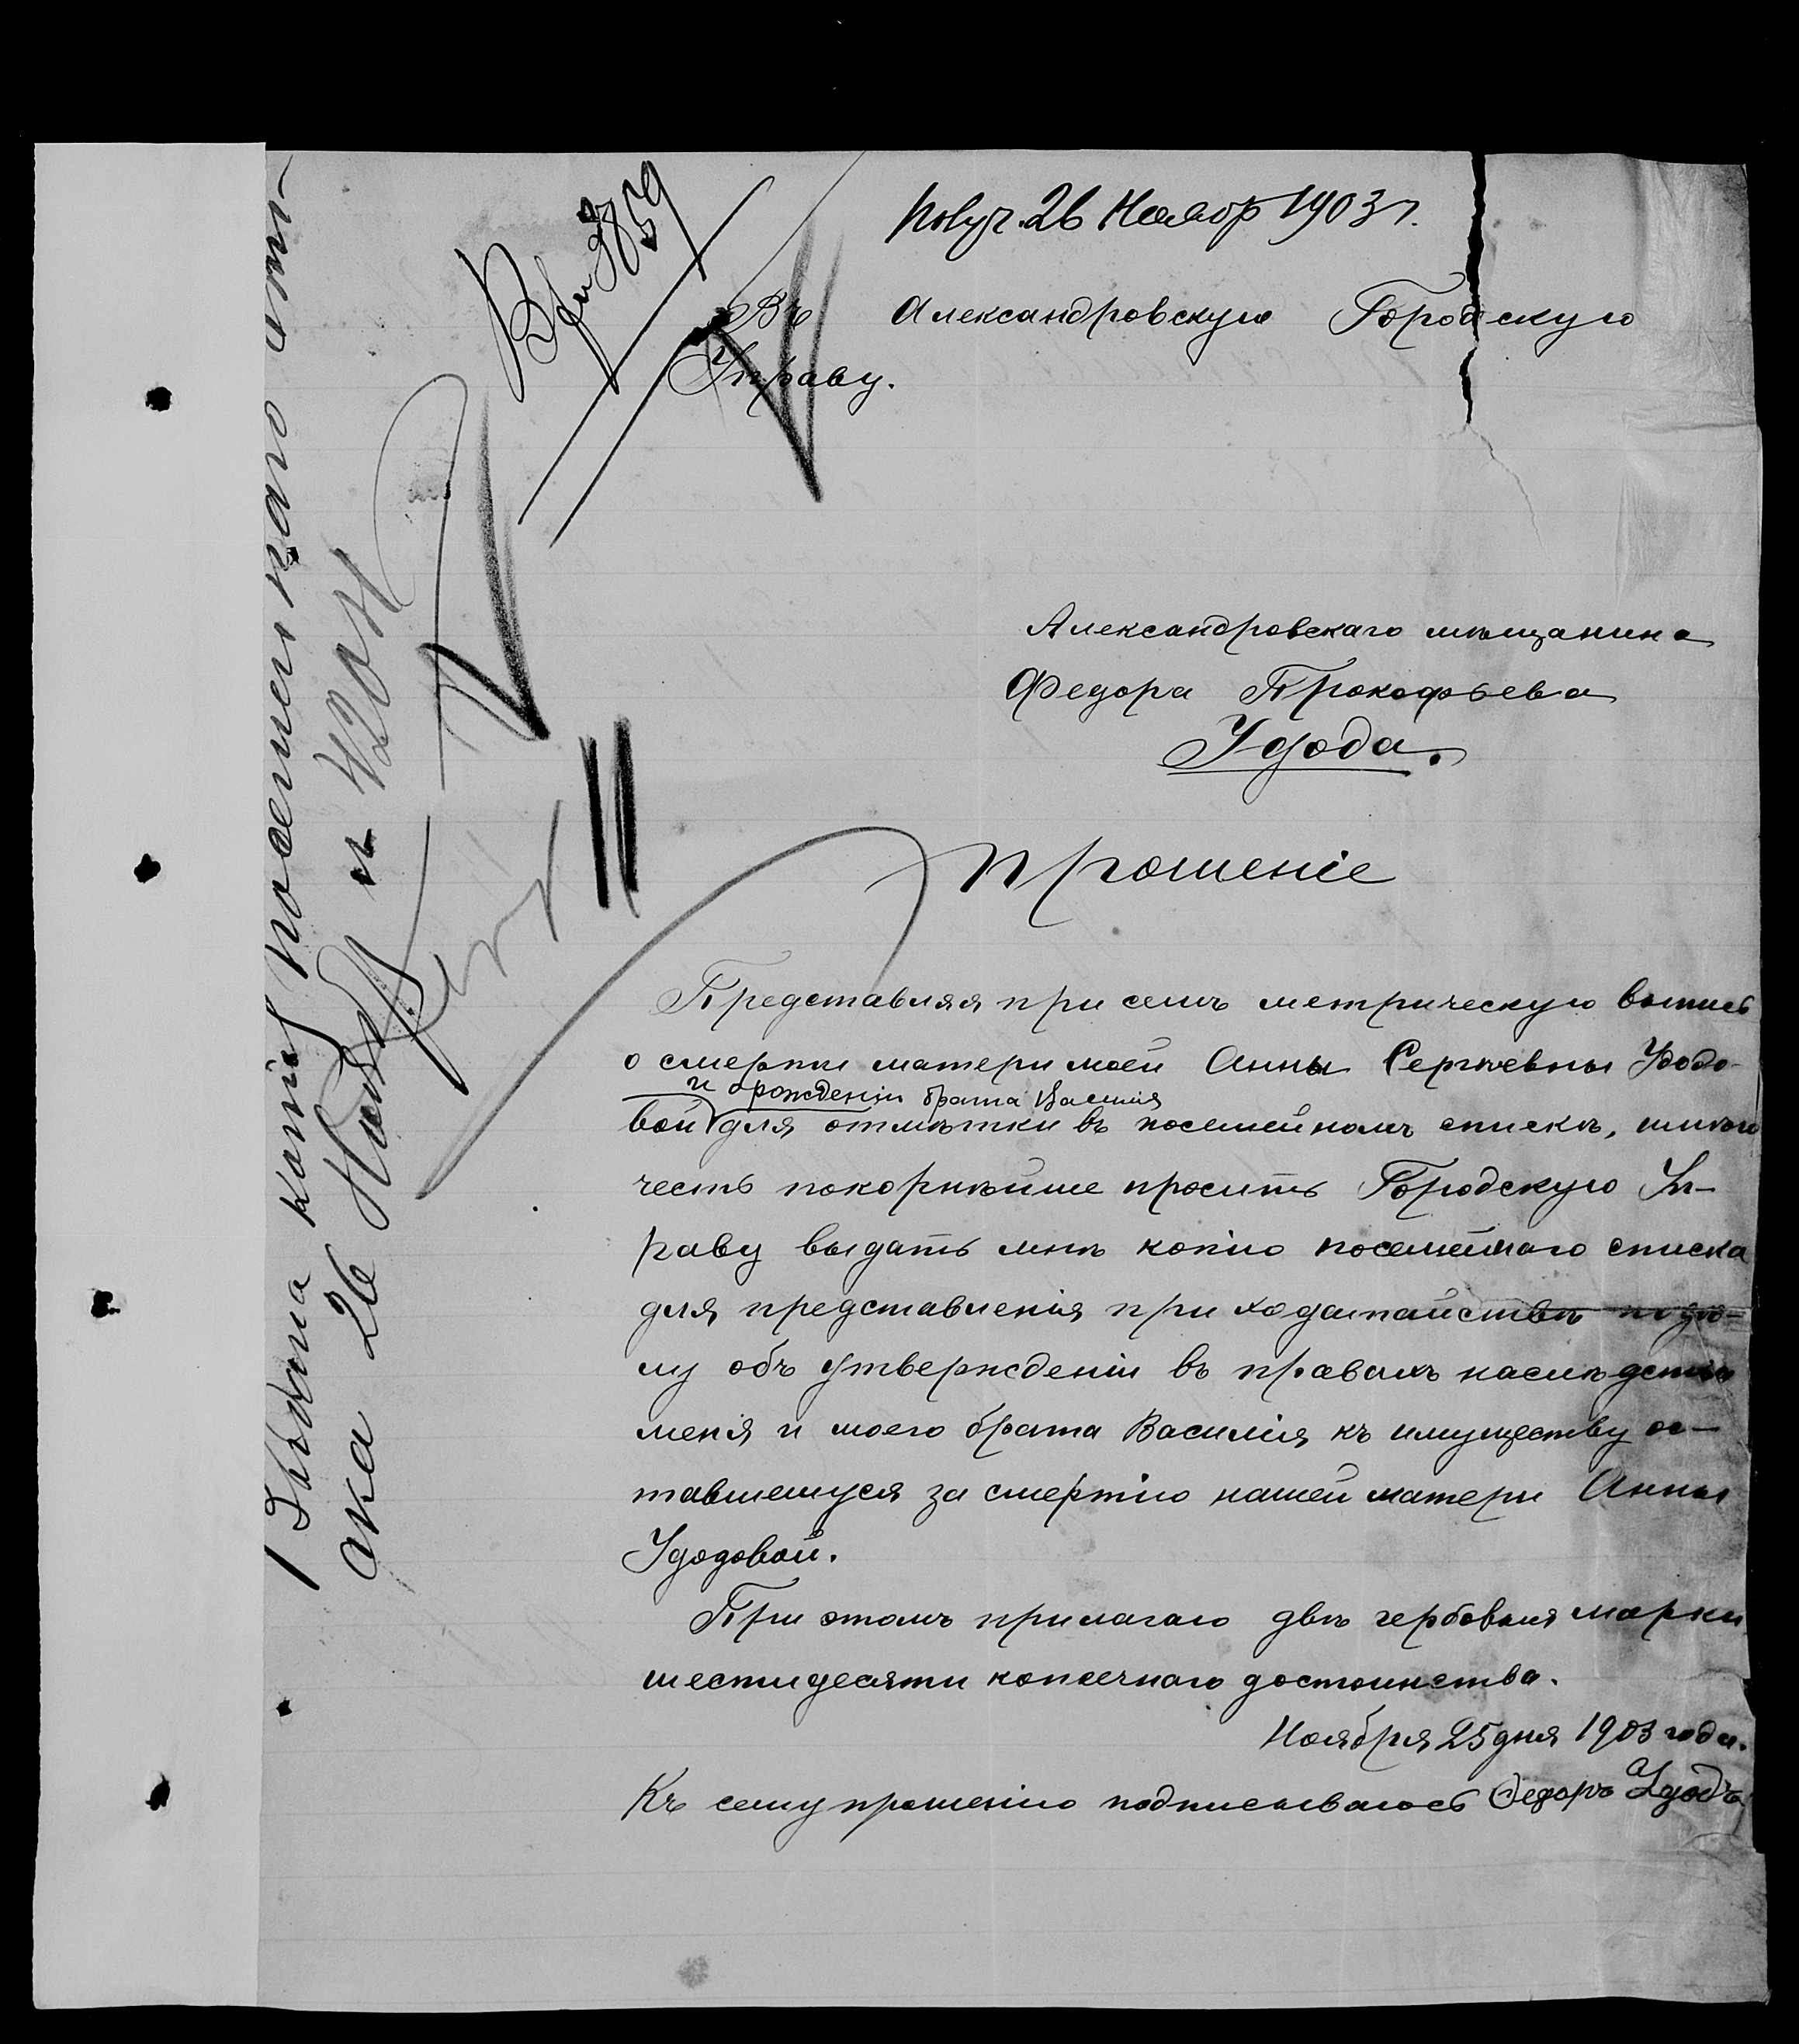 Получ. 26 Ноябр 1903 г.
Вх № 3859
Въ Александровскую Городскую
Управу.
Александровскаго мѣщанина
Федора Прокофьева
Удода.
Прошеніе
Представляя при семъ метрическую выпись
о смерти матери моей Анны Сергѣевны Удодо-
и о рожденіи брата Василія
вой для отмѣтки въ посемейномъ спискѣ, имѣю
честь покорнѣйше просить Городскую Уп-
раву выдать мнѣ копію посемейнаго списка
для представленія при ходатайствѣ
му объ утвержденіи въ правахъ наслѣдства
меня и моего брата Василія къ имуществу ос-
тавшемуся за смертію нашей матери Анны
Удодовой.
При этомъ прилагаю двѣ гербовыя марки
шестидесяти копеечнаго достоинства.
Ноября 25 дня 1903 года.
Къ сему прошенію подписываюсь Федоръ Удодъ
Выдана копія посемейнаго спи-
ска 26 Ноября